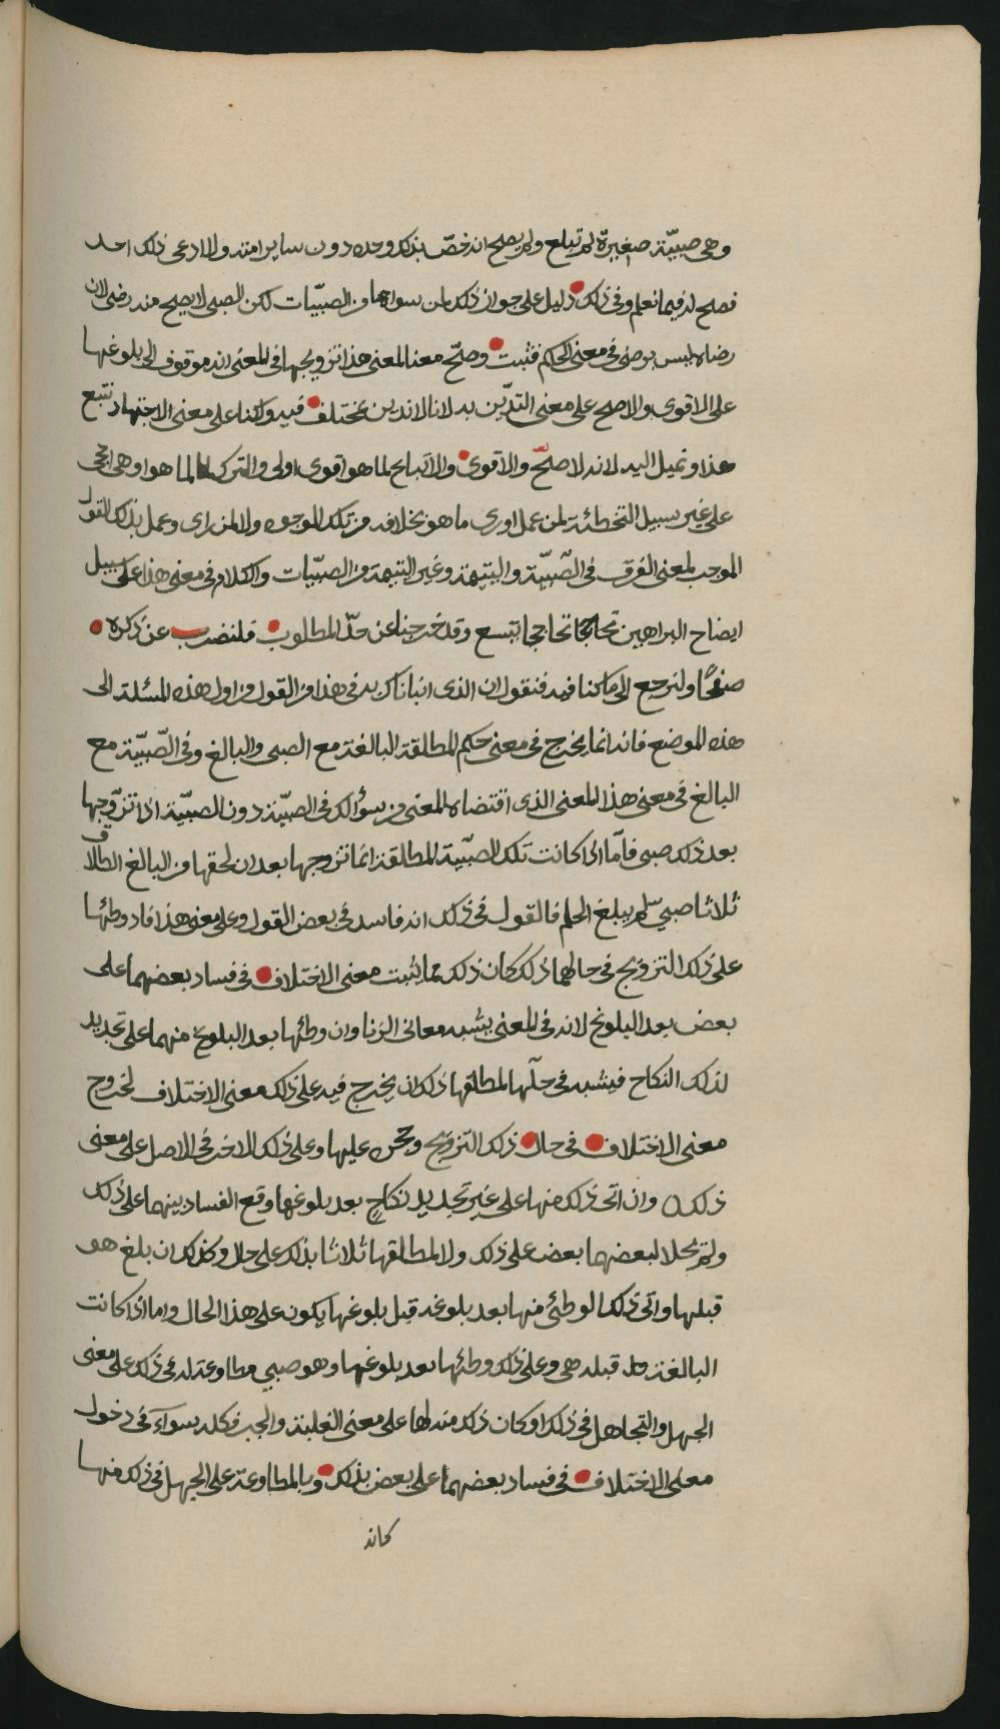 وهي صبيّة صغيرة لم تبلغ ولم يصلح انه خصّ بذلك وحده دون ساير امته ولا ادعى ذلك احد
فصلح له فيما نعلم وفي ذلك دليل على جواز ذلك لمن سواهما من الصبيّات لكن الصبي لا يصلح منه رضى لان
رضاه ليس برضى في معنى الحكم فثبت وصحّ معنا لمعنى هذا تزويجها في المعنى انه موقوف الى بلوغها
على الاقوى والاصح على معنى التديّن به لانا لا ندين بمختلف فيه ولكنا على معنى الاجتهاد نتبع
هذا ونميل اليه لانه لاصحّ والاقوى والاتباع لما هو اقوى اولى والترك لما هو اوهى احجى
على غير سبيل التخطئة لمن عمل اورى ما هو بخلافه من تلك الوجوه ولا لمن راى وعمل بذلك القول
الموجب لمعنى الفرق في الصّبيّة واليتيمة وغير اليتيمة من الصبيّات والكلام في معنى هذا على سبيل
ايضاح البراهين تحاججا تحاججا يتسع وقد خرجنا عن حدّ المطلوب فلنضرب عن ذكره
صفحًا ولنرجع الى ما كنا فيه فنقول ان الذي انبأناك به في هذا من القول من اول هذه المسئلة الى
هذه الموضع فانه انما يخرج في معنى حكم المطلقة البالغة مع الصبي والبالغ وفي الصّبيّة مع
البالغ في معنى هذا المعنى الذي اقتضاه المعنى من سؤالك في الصبيّة دون الصبيّة اذا تزوّجها
بعد ذلك صبي فأمّا اذا كانت تلك الصّبيّة المطلقة انما تزوجها بعد ان لحقها من البالغ الطلاق
ثلاثا صبيّ لم يبلغ الحلم فالقول في ذلك انه فاسد في بعض القول وعلى معنى هذا فاد وطئها
على ذلك التزويج في حالهما ذلك كان ذلك مما يثبت معنى الاختلاف في فساد بعضهما على
بعض بعد البلوغ لانه في المعنى يشبه معاني الزنا وان وطئها بعد البلوغ منهما على تجديد
لذلك النكاح فيشبه في حلّها لمطلقها ذلك ان يخرج فيه على ذلك معنى الاختلاف لخروج
معنى الاختلاف في حال ذلك التزويج وعلى ذلك الاخر في الاصل على معنى
ذلك وان اتى ذلك منها على غير تجديد نكاح بعد بلوغها وقع الفساد بينهما على ذلك
ولم يحلا لبعضهما بعض على ذلك ولا لمطلقها ثلاثا بذلك على حال وكذلك ان بلغ هو
قبلها واتى ذلك الوطئ منها بعد بلوغه قبل بلوغها يكون على هذا الحال واما اذا كانت
البالغة قبله هي وعلى ذلك وطئها بعد بلوغها وهو صبي مطاوعة له في ذلك على معنى
الجهل والتجاهل في ذلك او كان ذلك منه لها على معنى الغلبة والجبر فكله سوآء في دخول
معنى الاختلاف في فساد بعضهما على بعض بذلك وبالمطاوعة على الجهل في ذلك منها
كانه